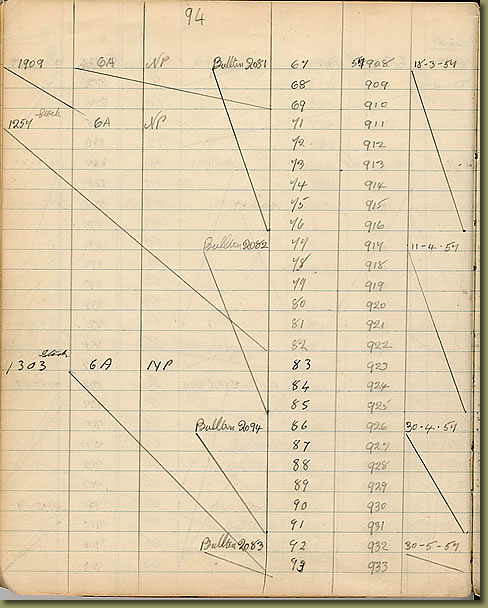 94
1909 6A NP Bulltin 2081 67 57908 18-3-57
68 909
69 910
Stock
1257 6A NP 71 911
72 912
73 913
74 914
75 915
76 916
Bulltin 2082 77 917 11-4-57
78 918
79 919
80 920
81 921
82 922
Stock
1303 6A NP 83 923
84 924
85 925
Bulltin 2094 86 926 30-4-57
87 927
88 928
89 929
90 930
91 931
Bulltin 2083 92 932 30-5-57
93 933